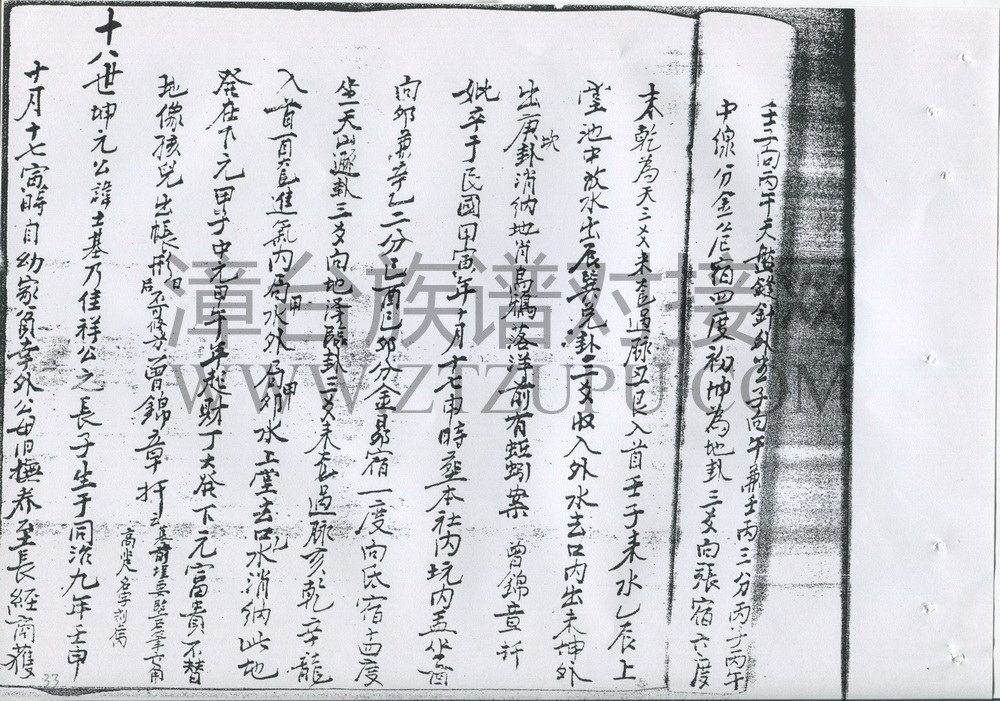 壬子向丙午天盤縫針外坐子向午兼壬丙三分丙子丙午
中線一分金坐危宿四度初坤為地卦三爻向張宿六度
未乾為天三爻來龍過脉丑艮入首壬子來水乙辰上
堂池中放水出辰巽兑卦三爻收入外水去口內出未坤外
出庚坎卦消納地肖烏鴉落洋前有蚯蚓案 曾錦章扦
妣卒于民國甲寅年十月十七申時塟本社內坑內孟坐酉
向卯兼辛乙二分己酉己卯分金昴宿一度向氐宿十四度
坐天山遯卦三爻向地澤臨卦三爻來去過脉亥乾辛龍
入首酉龍進氣內局水甲外局卯甲水上堂去口水消納此地
發在下元甲子中元甲午年起財丁大發下元富貴不替
地像孩兒出帳形 曾錦章扦
墓前堂
高尖名字刻
十八世坤元公諱士基乃佳祥公之長子生于同治九年壬申
十月十七寅時自幼家貧幸外公毋旧撫养至長經商獲
33
漳台族谱对接网
WWW.ZTZUPU.COM